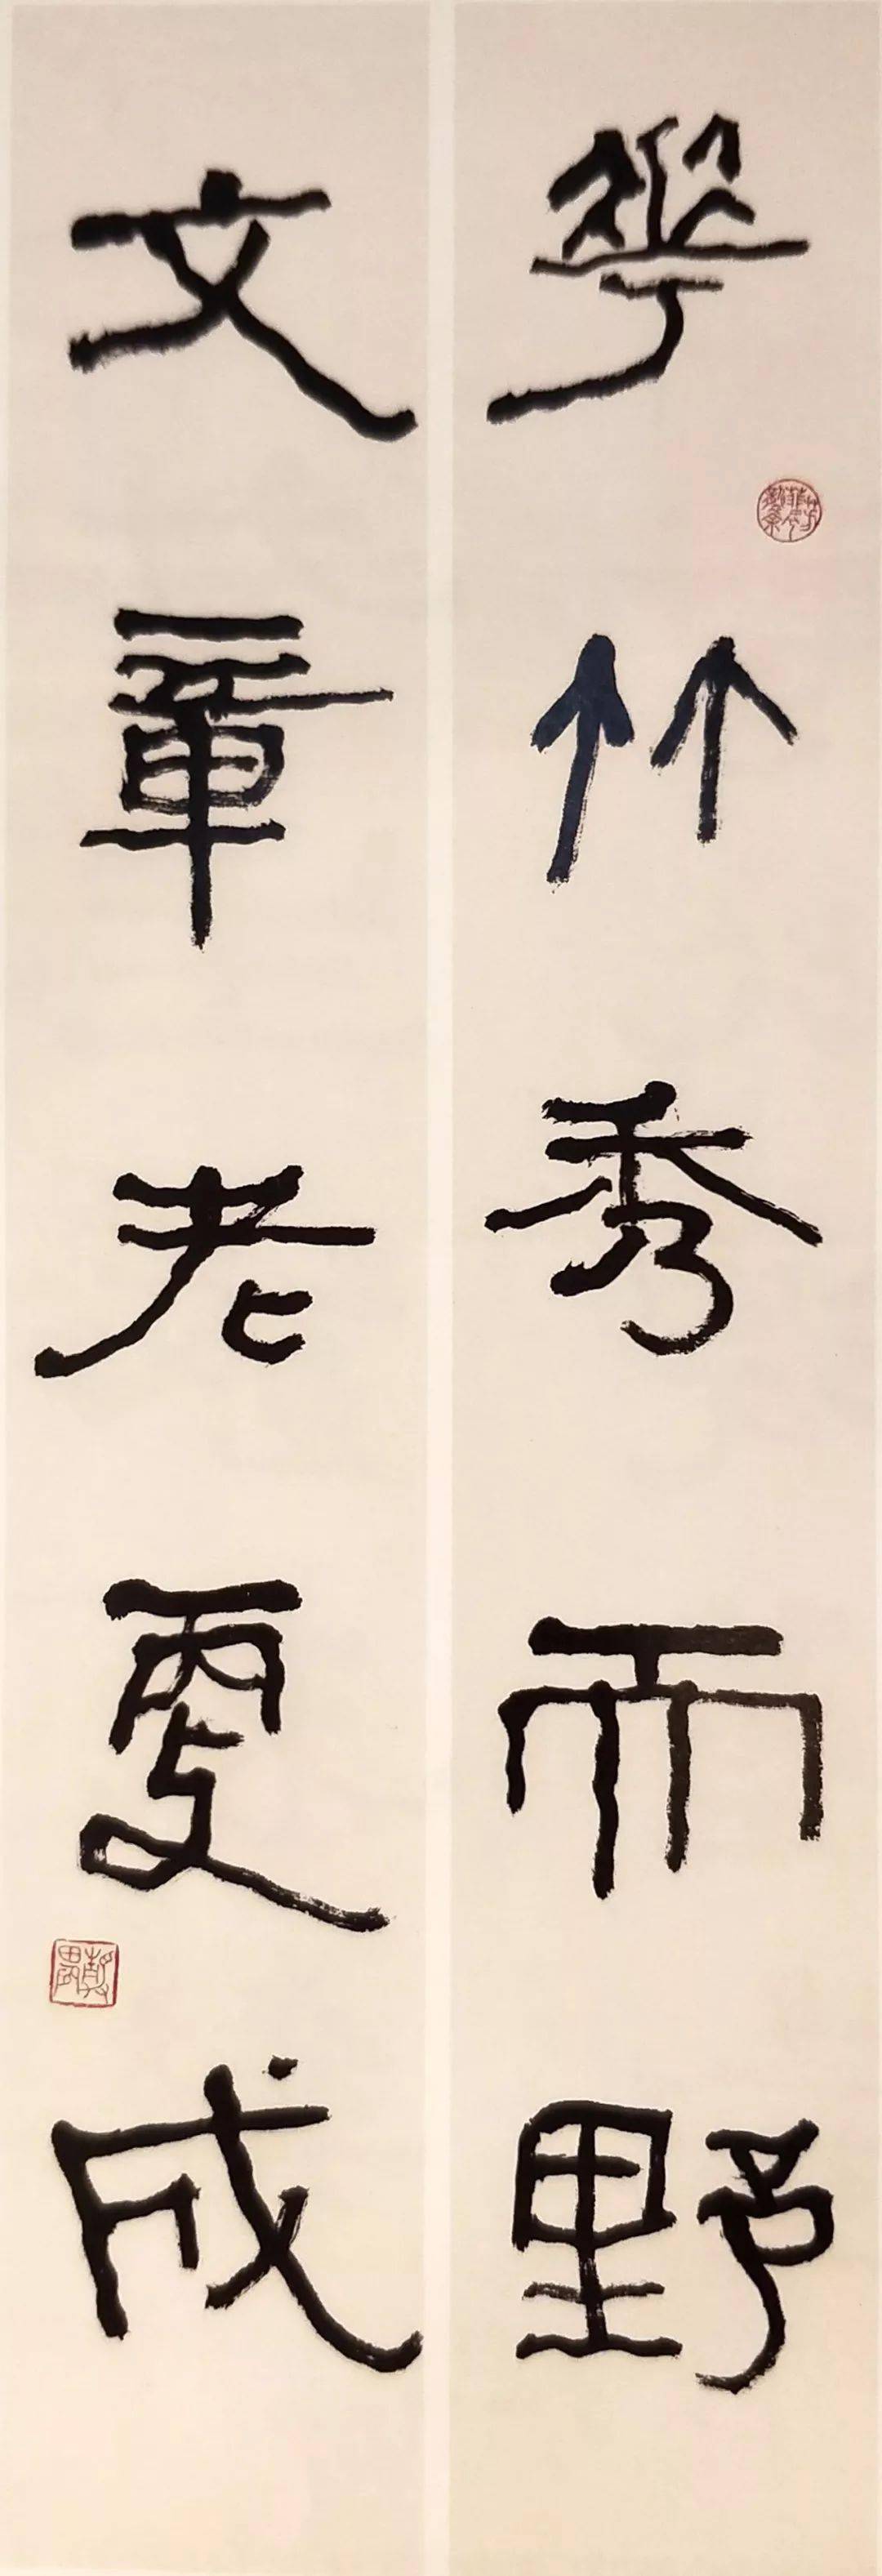 華竹秀而野
文章老更成